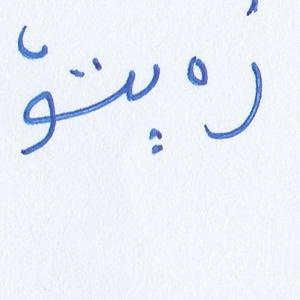 زەپتۆ